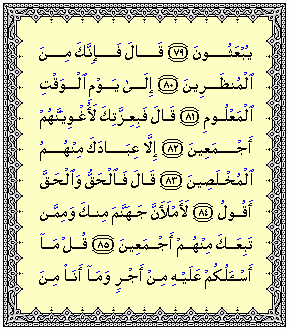 يُبْعَثُونَ ﴿٧٩﴾ قَالَ فَإِنَّكَ مِنَ
ٱلْمُنظَرِينَ ﴿٨٠﴾ إِلَىٰ يَوْمِ ٱلْوَقْتِ
ٱلْمَعْلُومِ ﴿٨١﴾ قَالَ فَبِعِزَّتِكَ لَأُغْوِيَنَّهُمْ
أَجْمَعِينَ ﴿٨٢﴾ إِلَّا عِبَادَكَ مِنْهُمُ
ٱلْمُخْلَصِينَ ﴿٨٣﴾ قَالَ فَٱلْحَقُّ وَٱلْحَقَّ
أَقُولُ ﴿٨٤﴾ لَأَمْلَأَنَّ جَهَنَّمَ مِنكَ وَمِمَّن
تَبِعَكَ مِنْهُمْ أَجْمَعِينَ ﴿٨٥﴾ قُلْ مَآ
أَسْـَٔلُكُمْ عَلَيْهِ مِنْ أَجْرٍ وَمَآ أَنَا۠ مِنَ